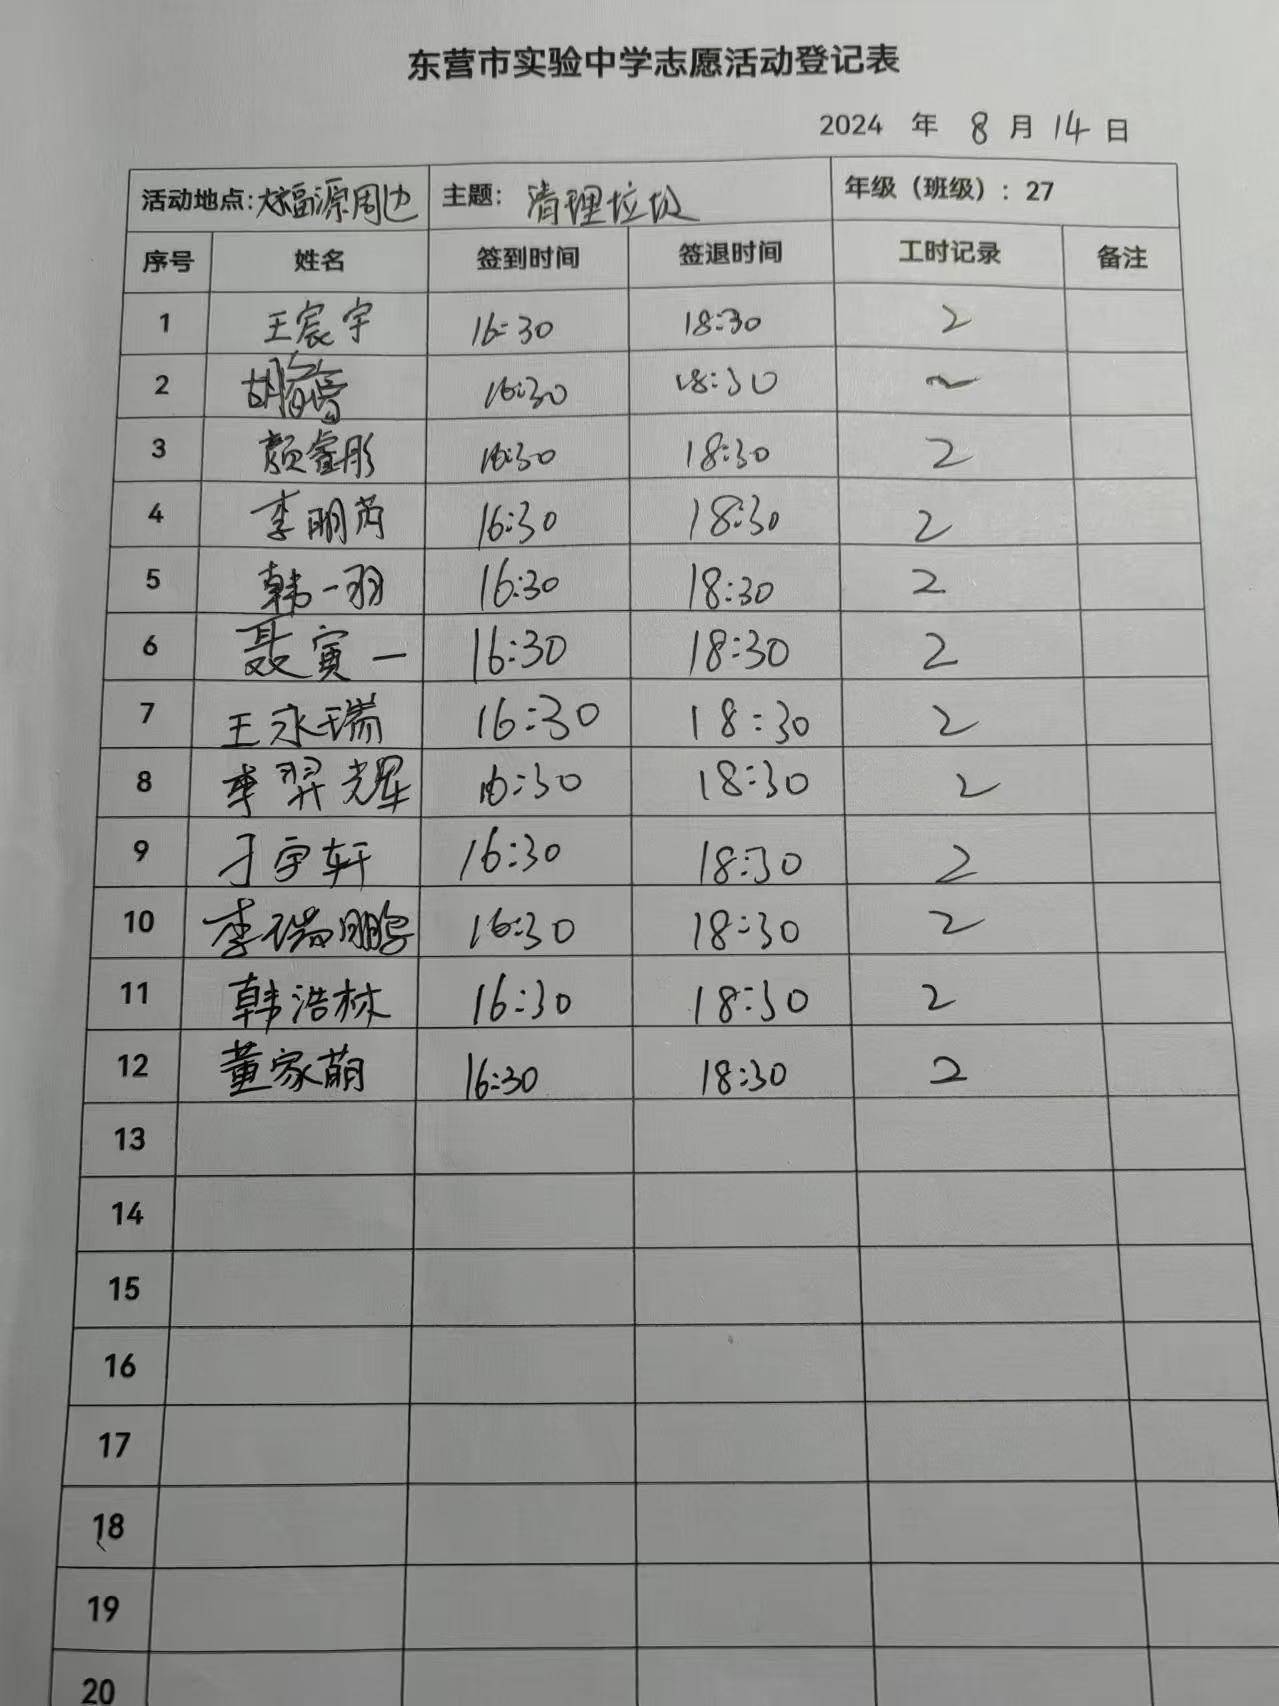 东营市实验中学志愿活动登记表
2024 年 8 月 14 日
活动地点:大福源周边 主题: 清理垃圾 年级（班级）: 27
序号 姓名 签到时间 签退时间 工时记录 备注
1 王宸宇 16:30 18:30 2
2 胡 16:30 18:30
3 颜睿彤 16:30 18:30 2
4 李明芮 16:30 18:30 2
5 韩一羽 16:30 18:30 2
6 聂寅一 16:30 18:30 2
7 王永瑞 16:30 18:30 2
8 李羿光军 16:30 18:30 2
9 刁宇轩 16:30 18:30 2
10 李瑞鹏 16:30 18:30 2
11 韩浩林 16:30 18:30 2
12 董家萌 16:30 18:30 2
13
14
15
16
17
18
19
20